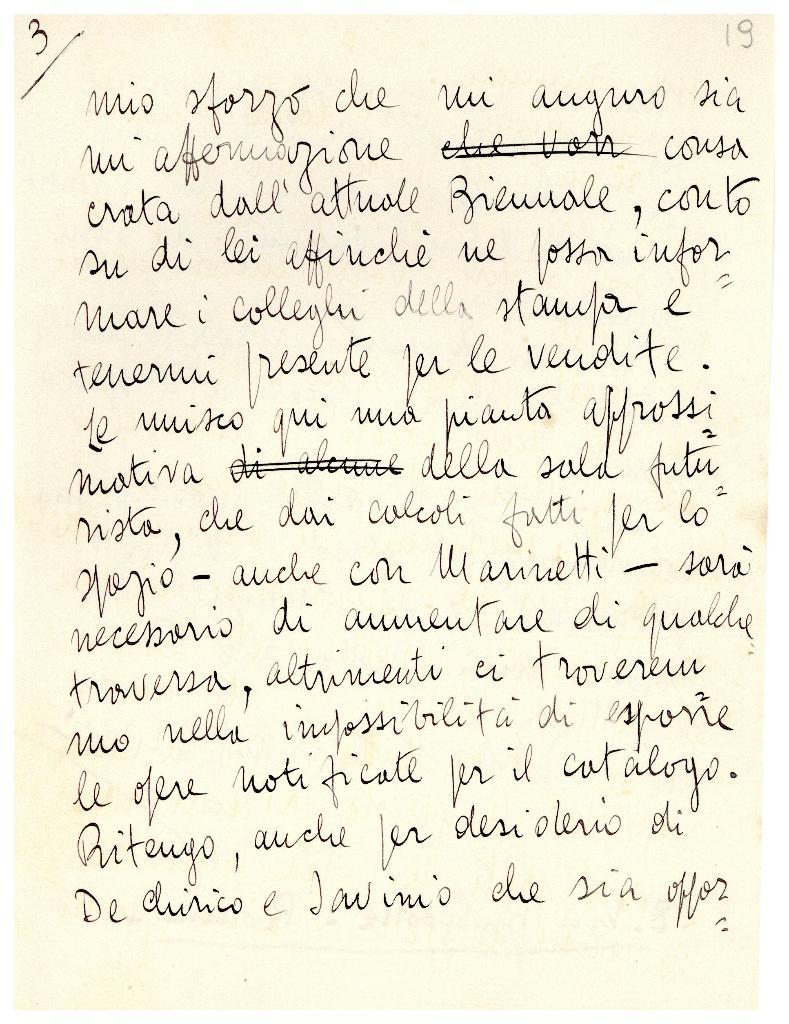 3
19
mio sforzo che mi auguro sia
un'affermazione che von consa
crata dall'attuale Biennale, conto
su di lei affinchè ne possa infor=
mare i colleghi della stampa e
tenermi presente per le vendite.
Le unisco qui una pianta approssi=
mativa di alcune della sala futu=
rista, che dai calcoli fatti per lo
spazio - anche con Marinetti - sarà
necessario di aumentare di qualche
traversa, altrimenti ci troverem=
mo nella impossibilità di esporre
le opere notificate per il catalogo.
Ritengo, anche per desiderio di
De Chirico e Savinio che sia oppor=